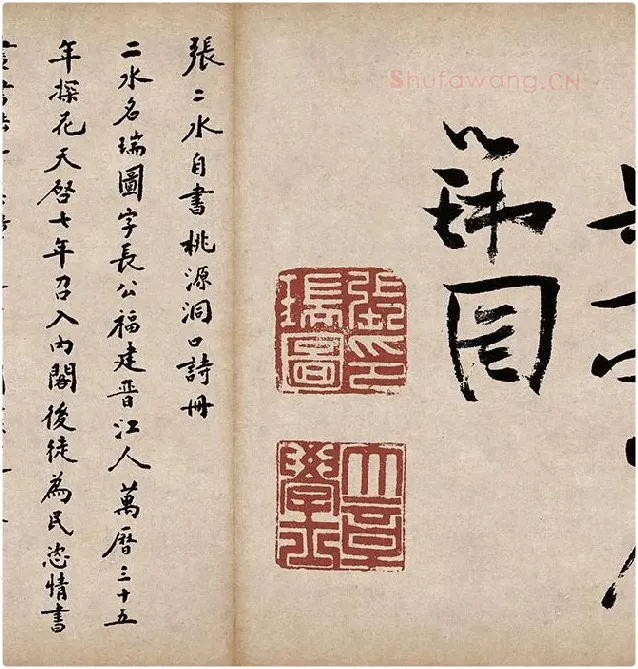 Shufawang.CN
瑞圖
張印
瑞圖
大章
學士
張二水自書桃源洞口詩冊
二水名瑞圖字長公福建晉江人萬曆三十五
年探花天啓七年召入內閣後徒為民恣情書